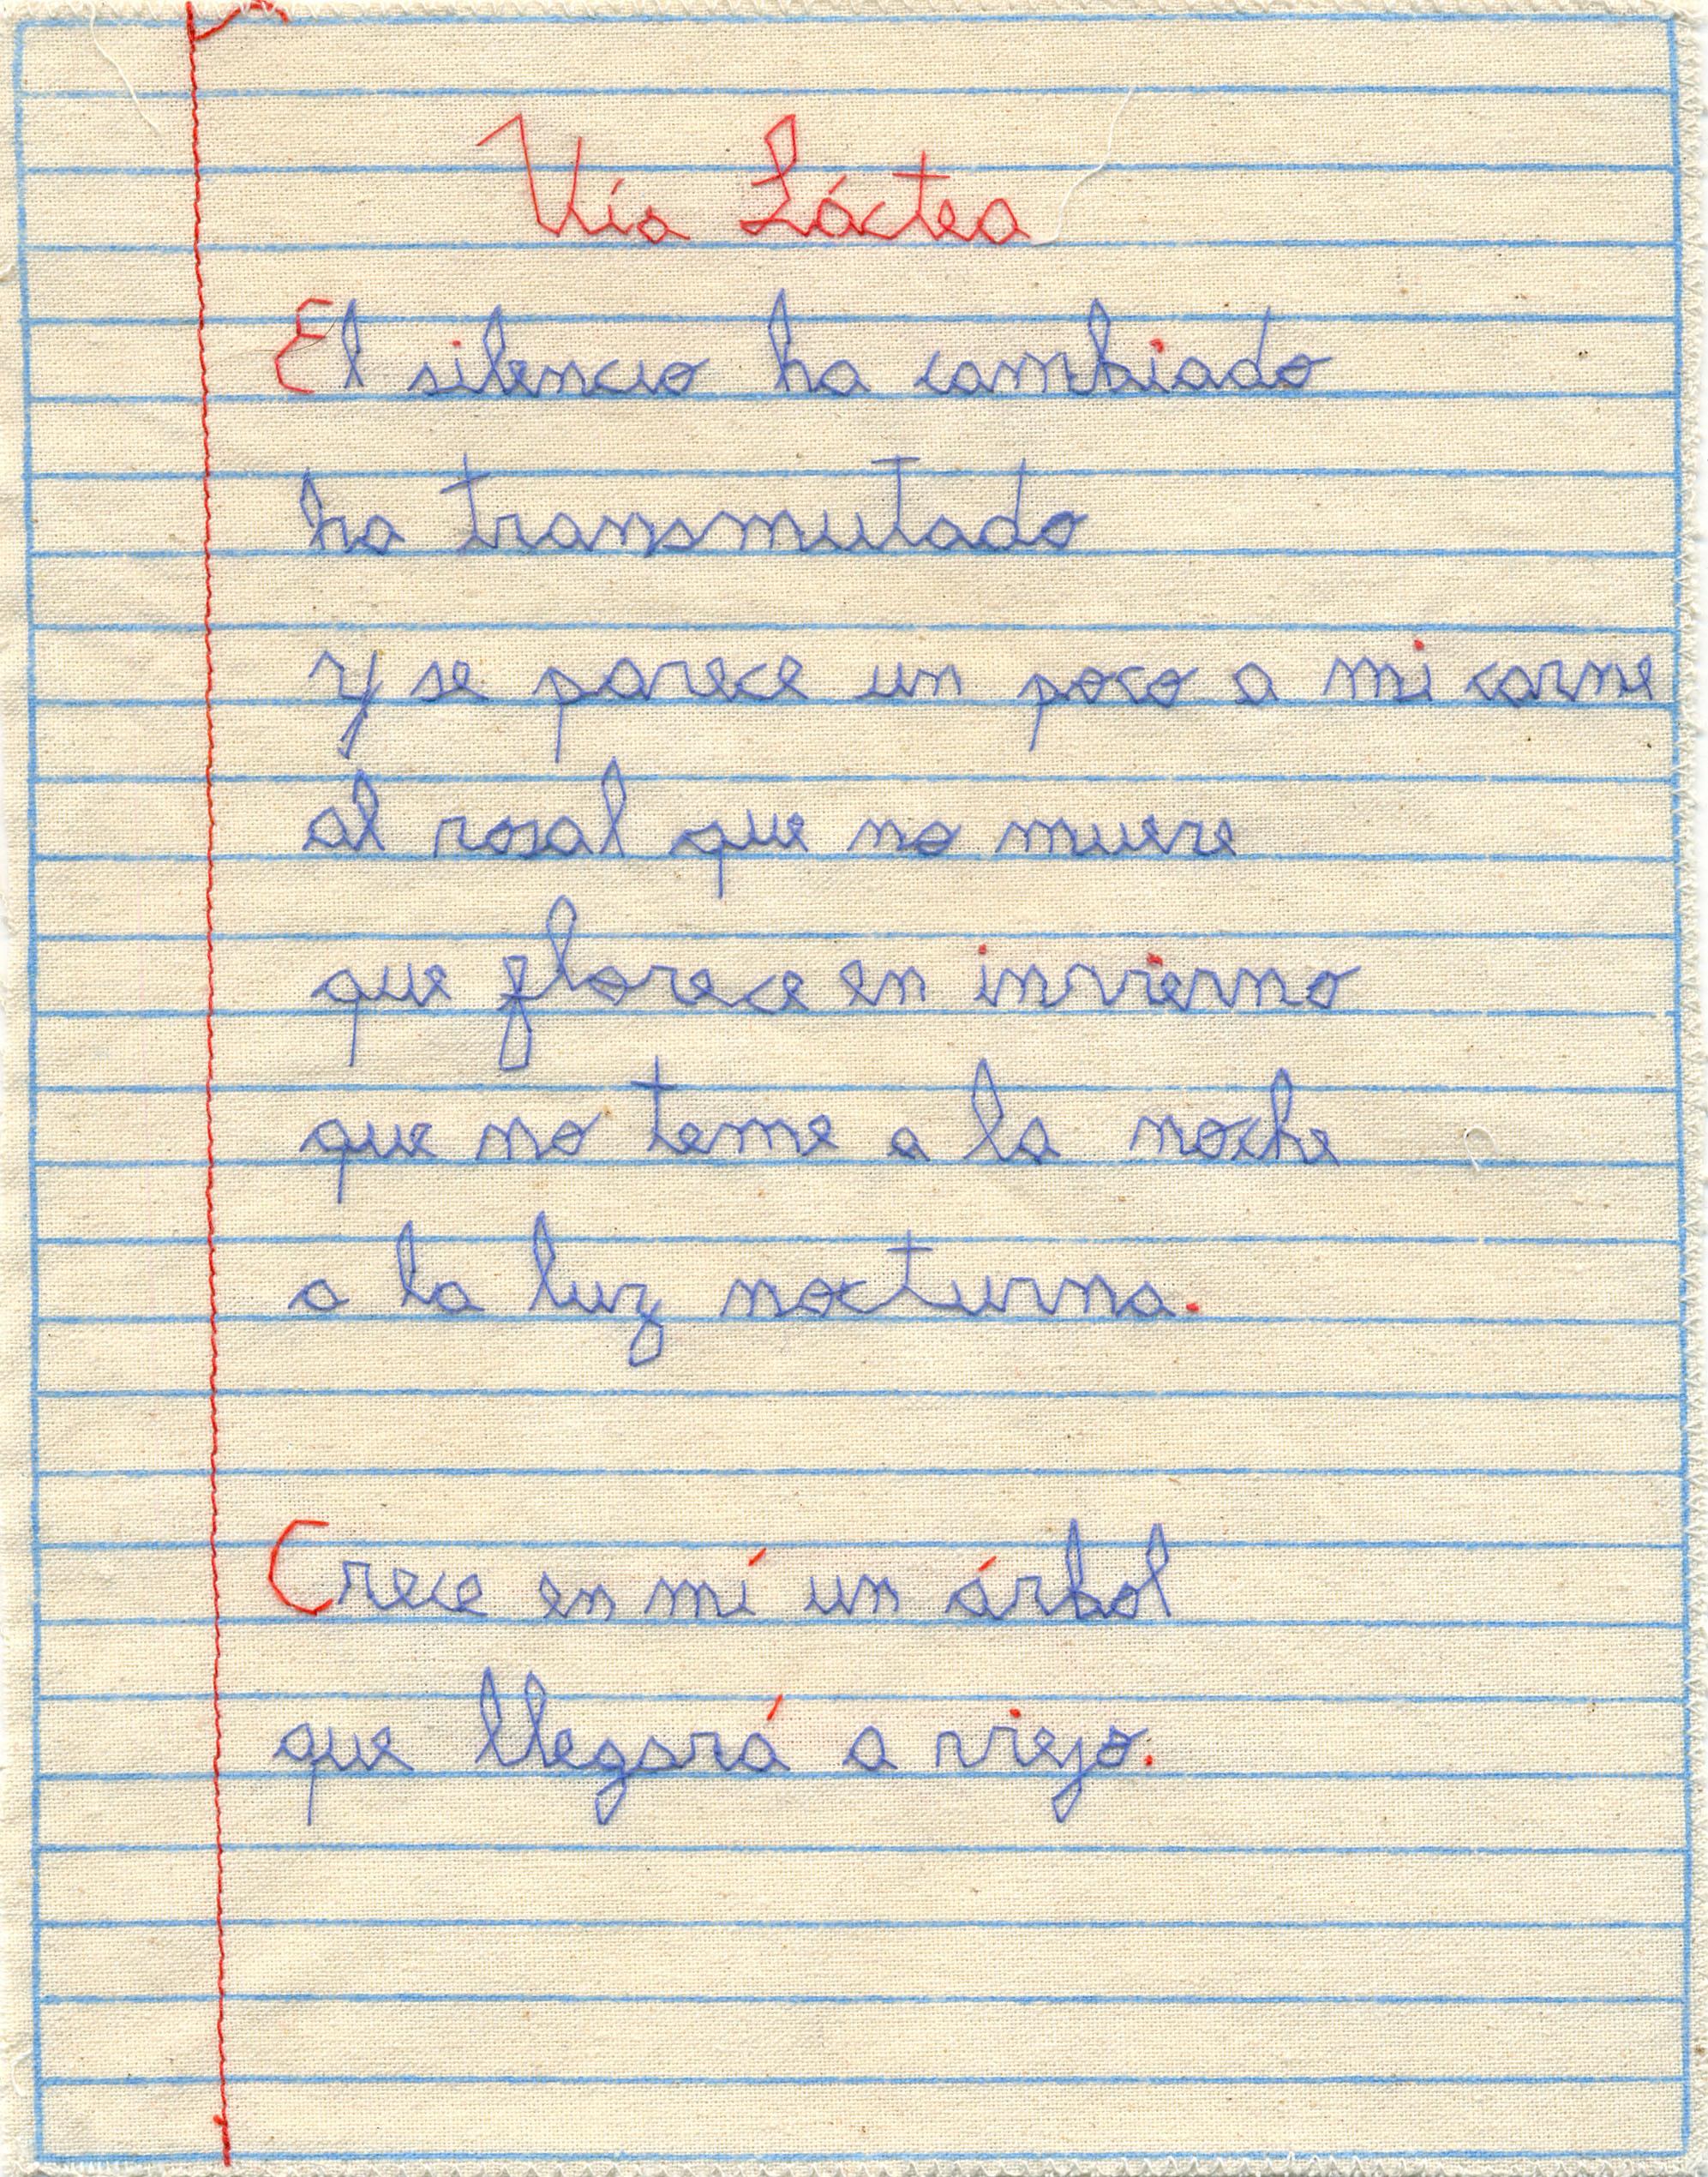 Vía Láctea
El silencio ha cambiado
ha transmutado
y se parece un poco a mi carne
al rosal que no muere
que florece en invierno
que no teme a la noche
a la luz nocturna.
Crece en mí un árbol
que llegará a viejo.